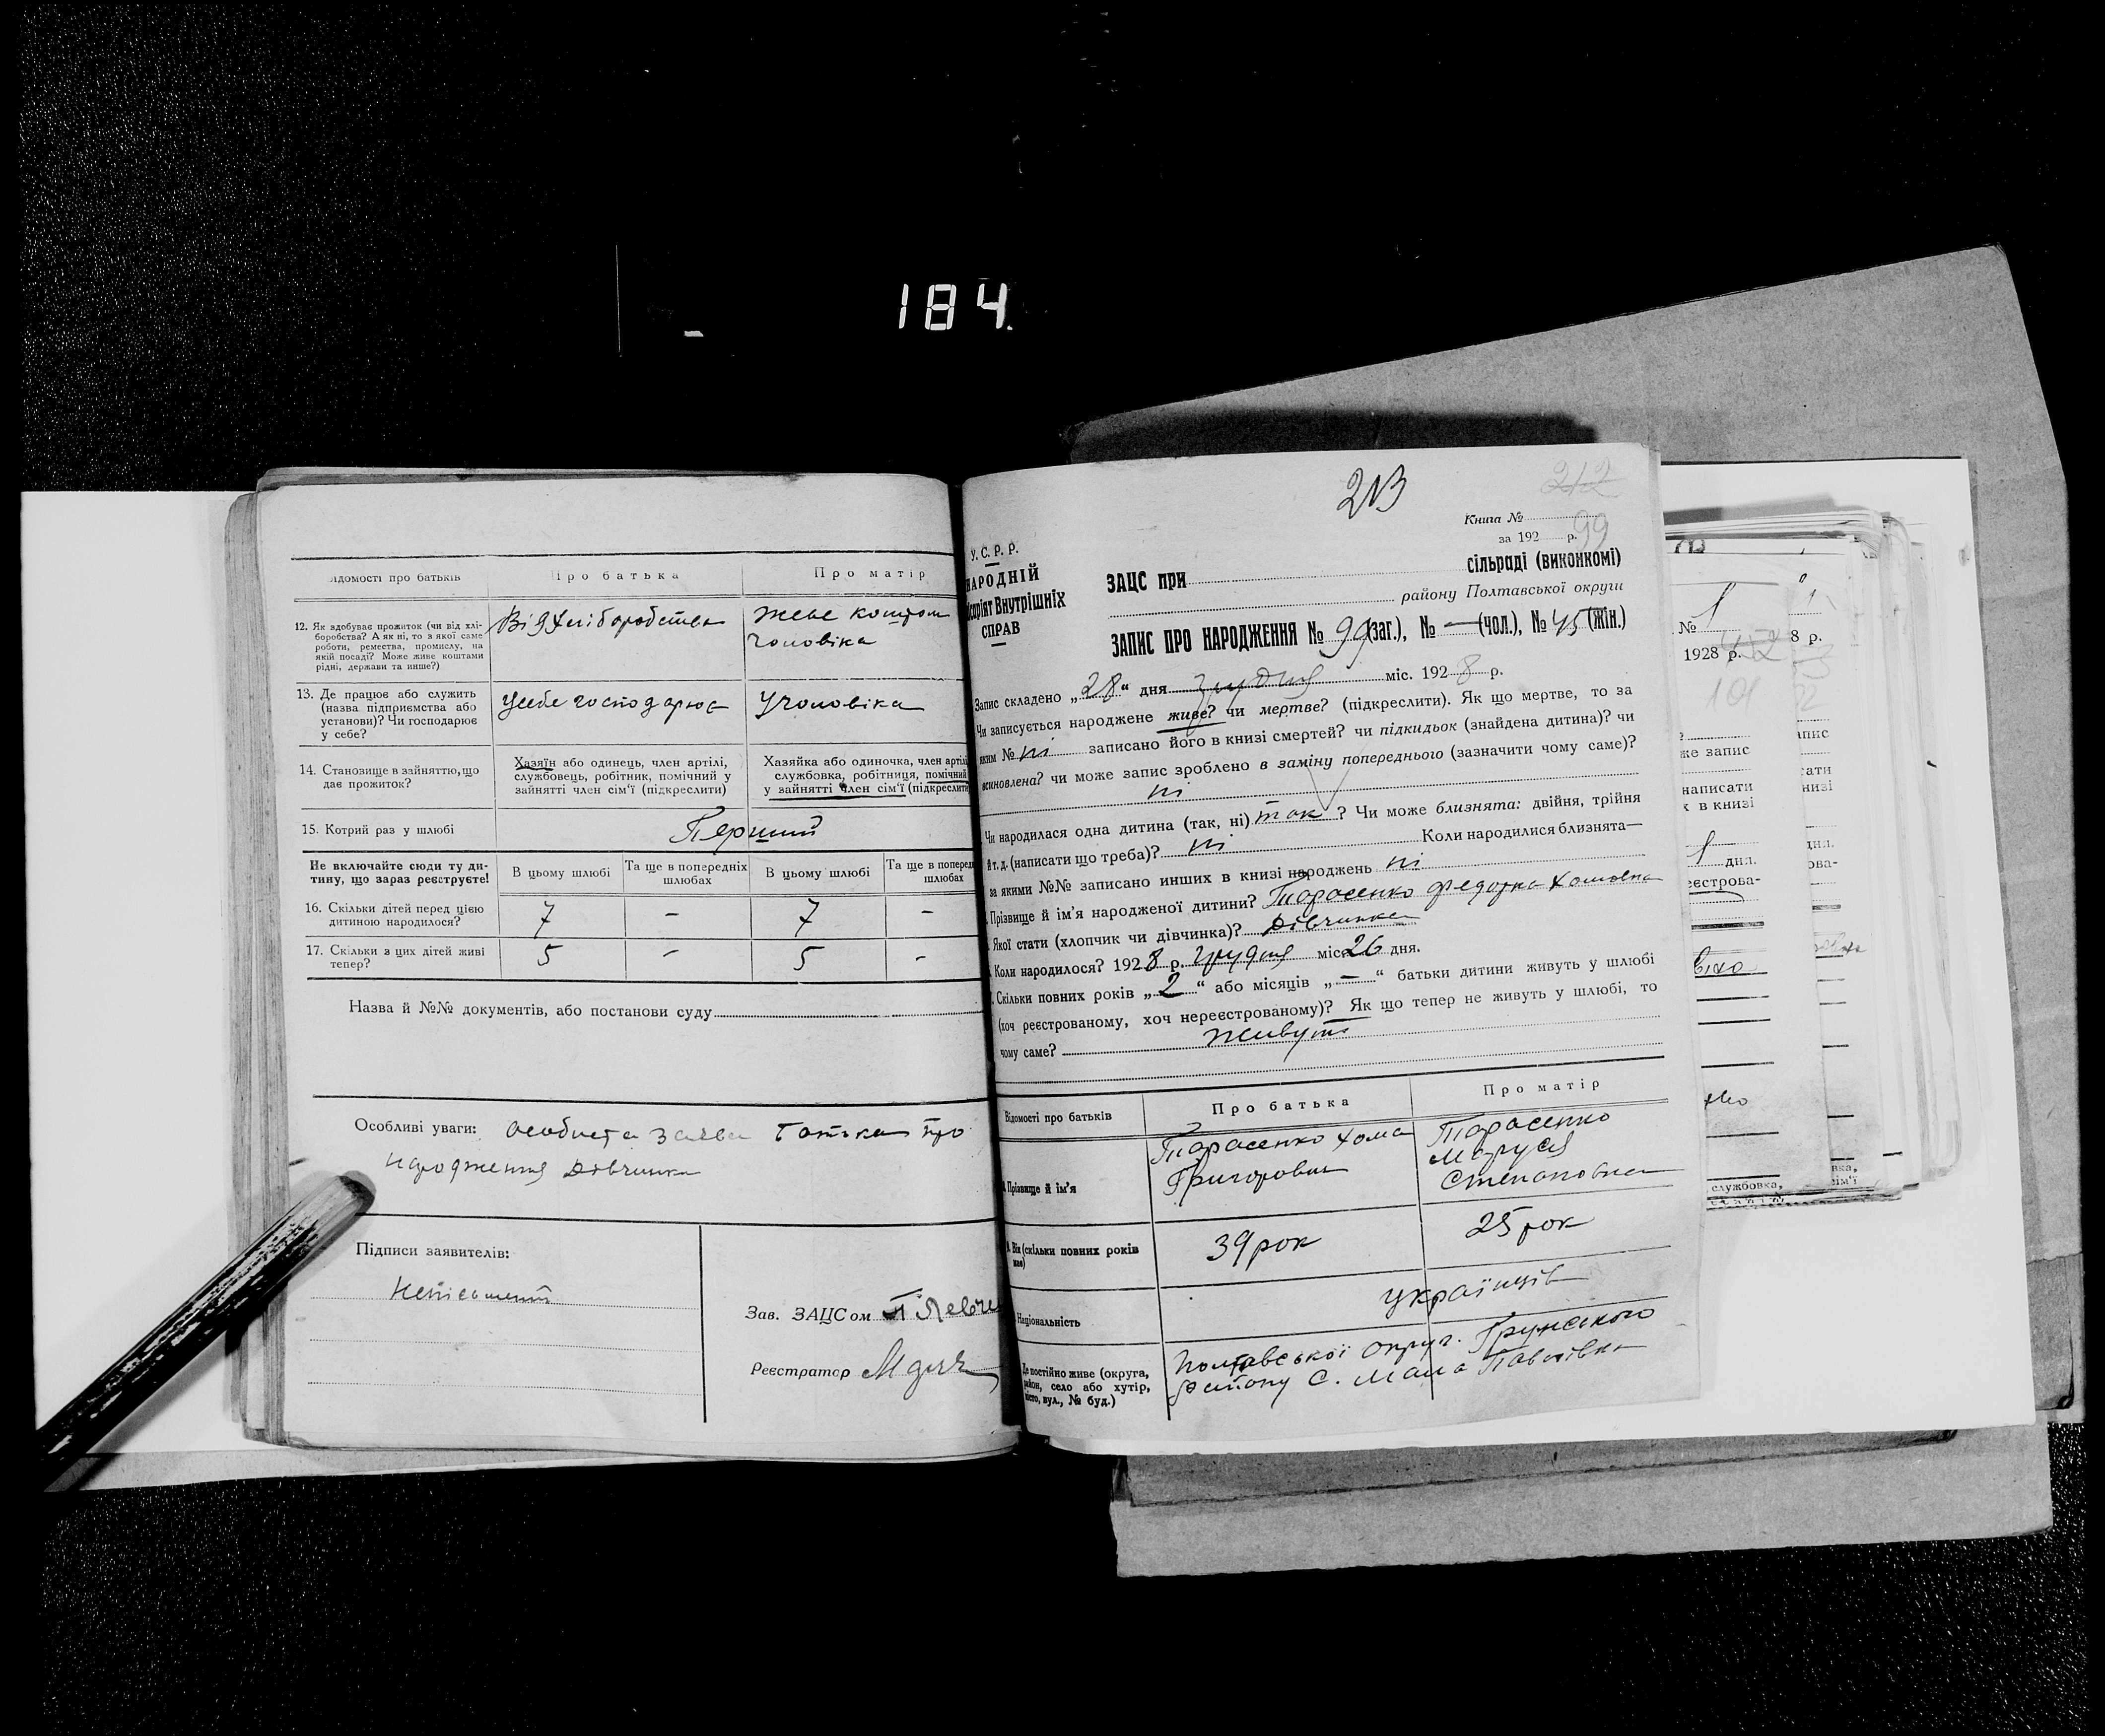 184.
Відомості про батьків
Про батька
Про матір
12. Як здобуває прожиток (чи від хлі-
боробства? А як ні, то з якої саме
роботи, ремества, промислу, на
якій посаді? Може живе коштами
рідні, держави та инше?)
Від хліборобства
живе коштом
чоловіка
13. Де працює або служить
(назва підприємства або
установи)? Чи господарює
у себе?
усебе господарює
У чоловіка
14. Становище в зайняттю, що
дає прожиток?
Хазяїн або одинець, член артілі,
службовець, робітник, помічний у
зайнятті член сім'ї (підкреслити)
Хазяйка або одиночка, член артілі
службовка, робітниця, помічний
у зайнятті член сім'ї (підкреслити
15. Котрий раз у шлюбі
Перший
Не включайте сюди ту ди-
тину, що зараз реєструєте!
В цьому шлюбі
Та ще в попередніх
шлюбах
В цьому шлюбі
Та ще в поперед
шлюбах
16. Скільки дітей перед цією
дитиною народилося?
7 - 7 -
17. Скільки з цих дітей живі
тепер?
5 - 5 -
Назва й №№ документів, або постанови суду
Особливі уваги: особиста заява батька про
народження дівчинки
Підписи заявителів:
Зав. ЗАЦСом
Реєстратор
213
212
Книга №
за 192 р.
99
У. С. Р. Р.
НАРОДНІЙ
Внутрішніх
СПРАВ
ЗАЦС при сільраді (виконкомі)
району Полтавської округи
ЗАПИС ПРО НАРОДЖЕННЯ № 99 (заг.), № — (чол.), № 45 (жін.)
Запис складено „28“ дня грудня міс. 1928 р.
Чи записується народжене живе? чи мертве? (підкреслити). Як що мертве, то за
яким № ні записано його в книзі смертей? чи підкидьок (знайдена дитина)? чи
всиновлена? чи може запис зроблено в заміну попереднього (зазначити чому саме)?
ні
Чи народилася одна дитина (так, ні) так ? Чи може близнята: двійня, трійня
й т. д. (написати що треба)? ні Коли народилися близнята—
за якими №№ записано инших в книзі народжень ні
Прізвище й ім'я народженої дитини? Тарасенко Федорка Хомовна
Якої стати (хлопчик чи дівчинка)? Дівчинка
Коли народилося? 1928 р. грудня міс. 26 дня.
Скільки повних років „2“ або місяців „—“ батьки дитини живуть у шлюбі
(хоч реєстрованому, хоч нереєстрованому)? Як що тепер не живуть у шлюбі, то
чому саме? живуть
Відомості про батьків
Про батька
Про матір
Прізвище й ім'я
Тарасенко Хома
Григорович
Тарасенко
Маруся
Степановна
Вік (скільки повних років
має)
39 рок
25 рок
Національність
українців
Де постійно живе (округа,
район, село або хутір,
місто, вул., № буд.)
Полтавської округ. Грунського
району С. Мала Павлівка
№ 1
1928 р.
8 р.
101
же запис
написати
х в книзі
1 дня.
еєстрова-
службовка,